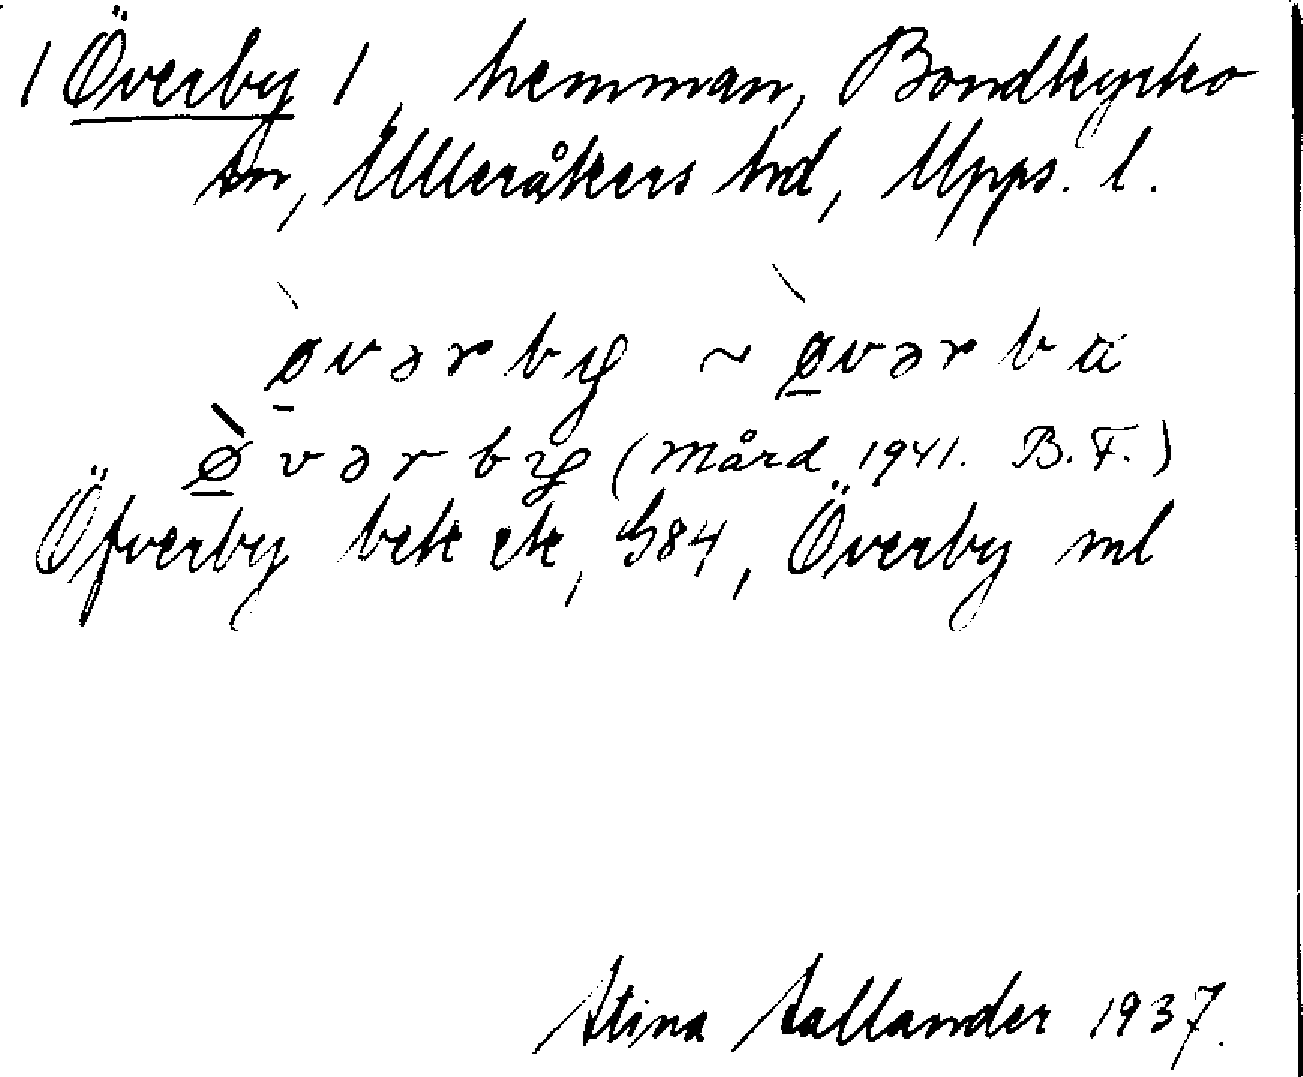 / Överby /, hemman, Bondkyrko
sn, Ulleråkers hd, Upps. l.
ø̀vərby ~ ø̀vərbä
ø̀vərby (Mård 1941. B.F.)
Öfverby bek ek, G84, Överby ml
Stina Sallander 1937.